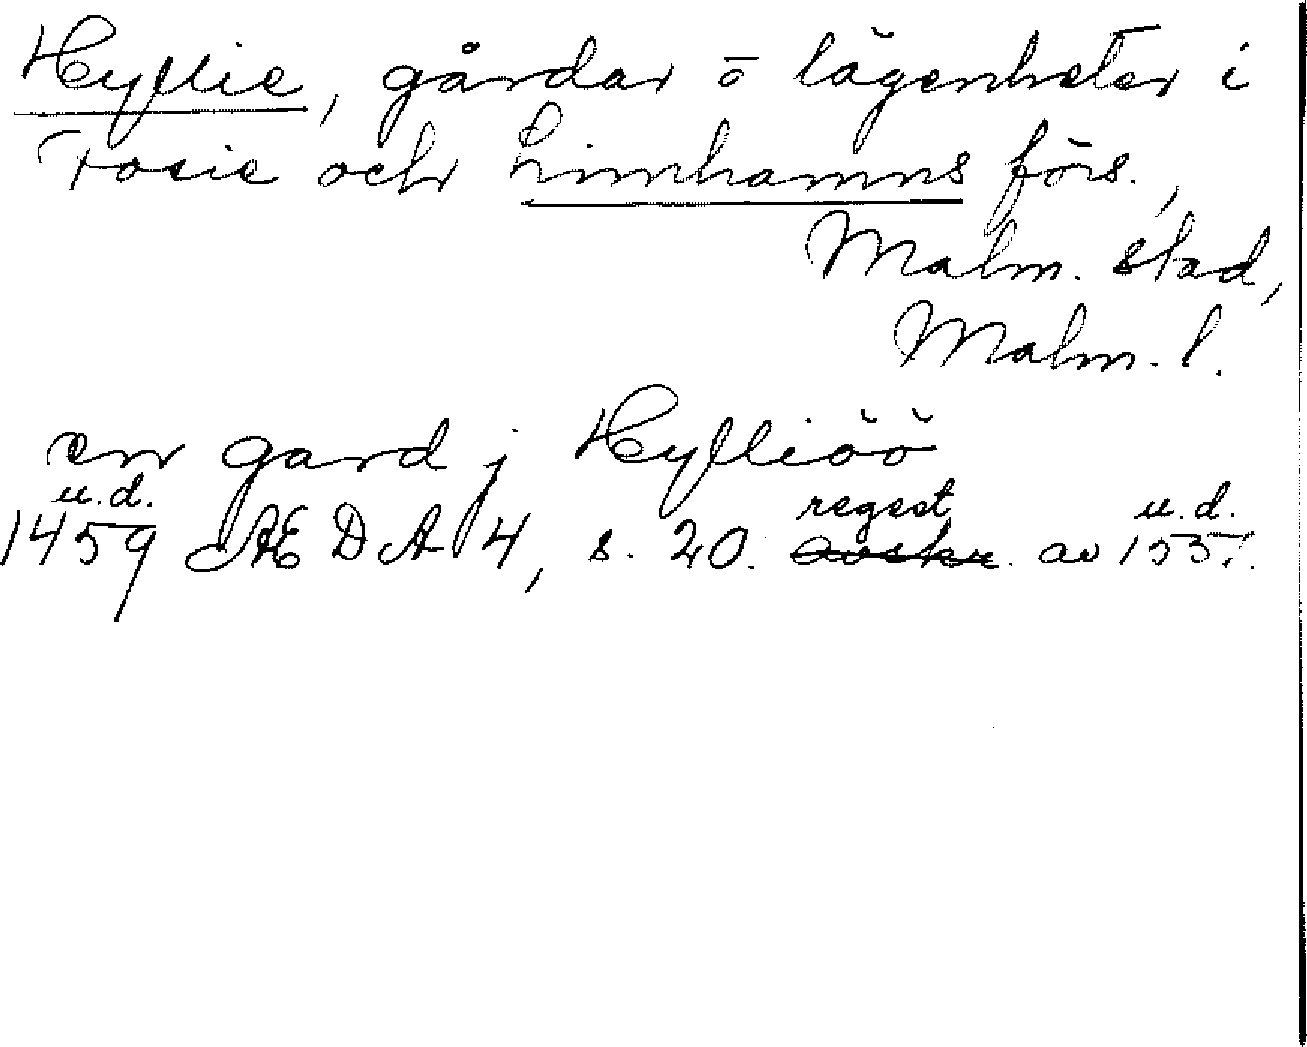 Hyllie, gårdar o lägenheter i
Fosie och Limhamns förs.,
Malm. stad,
Malm. l.
en gard j Hylliöö
u.d. regest u.d.
1459 ÆDA 4, s. 20. avskr. av 1557.